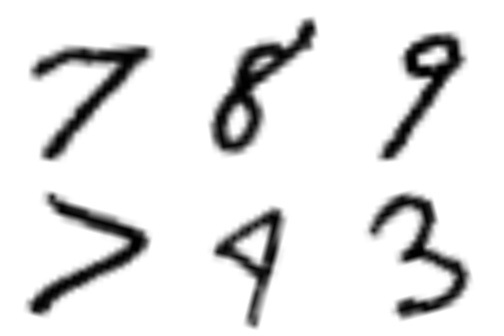 7 8 9
> 4 3